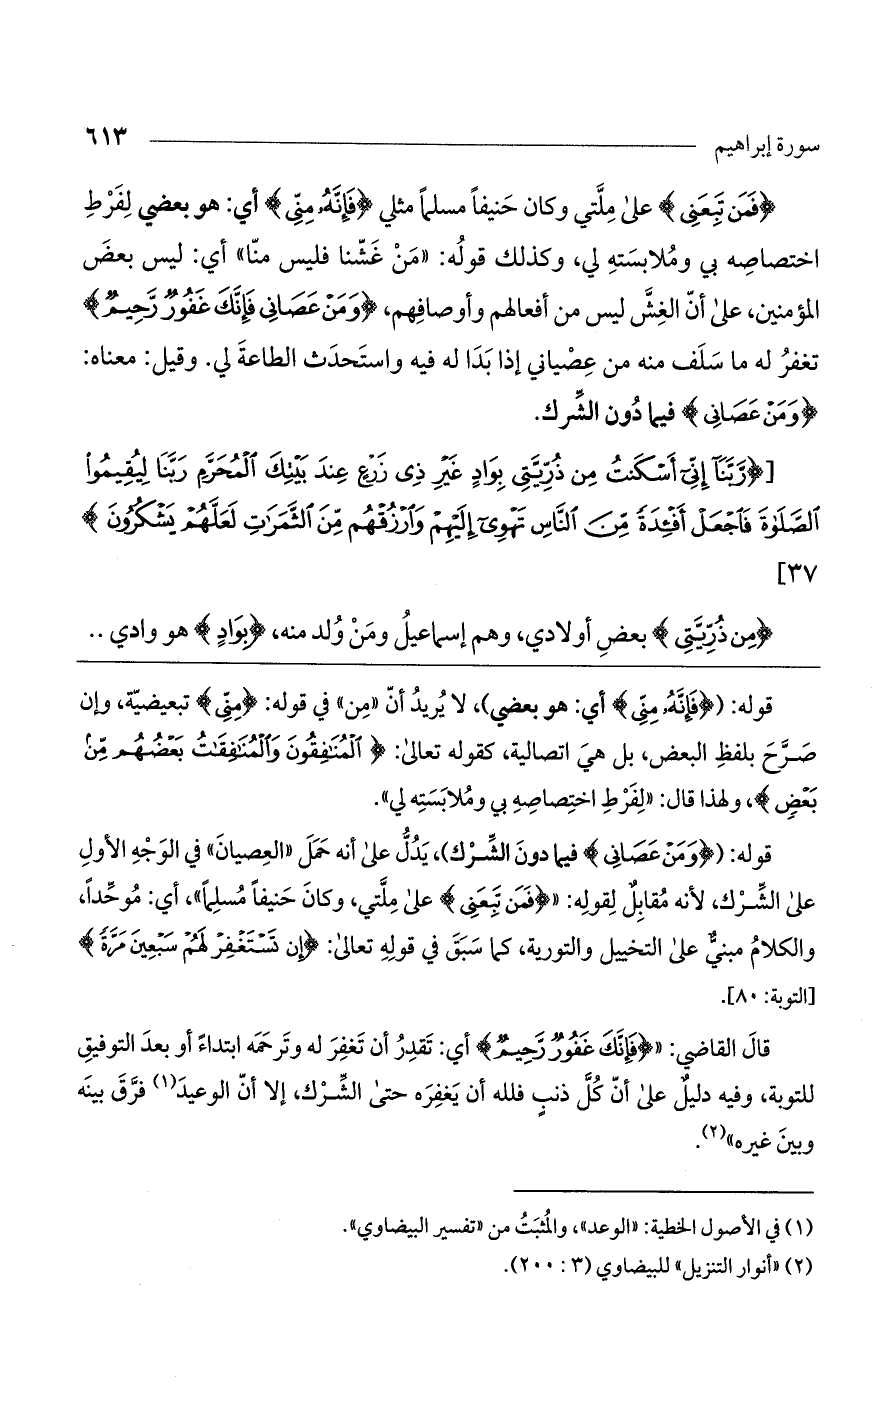 سورة إبراهيم ٦١٣
﴿فَمَن تَبِعَنِى﴾ علىٰ مِلَّتي وكان حَنيفاً مسلماً مثلي ﴿فَإِنَّهُۥ مِنِّى﴾ أي: هو بعضي لِفَرْطِ
اختصاصِه بي ومُلابسَتِهِ لي، وكذلك قولُه: «مَنْ غَشَّنا فليس منّا» أي: ليس بعضَ
المؤمنين، علىٰ أنّ الغِشَّ ليس من أفعالهم وأوصافِهم، ﴿وَمَنْ عَصَانِى فَإِنَّكَ غَفُورٌ رَّحِيمٌ﴾
تغفرُ له ما سَلَف منه من عِصْياني إذا بَدَا له فيه واستَحدَث الطاعةَ لي. وقيل: معناه:
﴿وَمَنْ عَصَانِى﴾ فيما دُون الشِّرك.
[﴿رَّبَّنَآ إِنِّىٓ أَسْكَنتُ مِن ذُرِّيَّتِى بِوَادٍ غَيْرِ ذِى زَرْعٍ عِندَ بَيْتِكَ ٱلْمُحَرَّمِ رَبَّنَا لِيُقِيمُوا۟
ٱلصَّلَوٰةَ فَٱجْعَلْ أَفْـِٔدَةً مِّنَ ٱلنَّاسِ تَهْوِىٓ إِلَيْهِمْ وَٱرْزُقْهُم مِّنَ ٱلثَّمَرَٰتِ لَعَلَّهُمْ يَشْكُرُونَ﴾
٣٧]
﴿مِن ذُرِّيَّتِى﴾ بعضِ أولادي، وهم إسماعيلُ ومَنْ وُلد منه، ﴿بِوَادٍ﴾ هو وادي ..
قوله: (﴿فَإِنَّهُۥ مِنِّى﴾ أي: هو بعضي)، لا يُريدُ أنّ «مِن» في قوله: ﴿مِنِّى﴾ تبعيضيّة، وإن
صَرَّحَ بلفظِ البعض، بل هيَ اتصالية، كقوله تعالىٰ: ﴿ٱلْمُنَٰفِقُونَ وَٱلْمُنَٰفِقَٰتُ بَعْضُهُم مِّنۢ
بَعْضٍ﴾، ولهذا قال: «لِفَرْطِ اختِصاصِهِ بي ومُلابَسَتِه لي».
قوله: (﴿وَمَنْ عَصَانِى﴾ فيما دونَ الشِّرك)، يَدُلُّ علىٰ أنه حَمَلَ «العِصيانَ» في الوَجْهِ الأولِ
علىٰ الشِّرك، لأنه مُقابِلٌ لِقولِه: «﴿فَمَن تَبِعَنِى﴾ علىٰ مِلَّتي، وكانَ حَنيفاً مُسلِماً»، أي: مُوحِّداً،
والكلامُ مبنيٌّ علىٰ التخييل والتورية، كما سَبَقَ في قولِهِ تعالىٰ: ﴿إِن تَسْتَغْفِرْ لَهُمْ سَبْعِينَ مَرَّةً﴾
[التوبة: ٨٠].
قالَ القاضي: «﴿فَإِنَّكَ غَفُورٌ رَّحِيمٌ﴾ أي: تَقدِرُ أن تَغفِرَ له وتَرحَمَه ابتداءً أو بعدَ التوفيقِ
للتوبة، وفيه دليلٌ علىٰ أنّ كُلَّ ذنبٍ فلله أن يَغفِرَه حتىٰ الشِّرك، إلا أنّ الوعيدَ(١) فرَّقَ بينَه
وبينَ غيره»(٢).
(١) في الأصول الخطية: «الوعد»، والمُثبَتُ من «تفسير البيضاوي».
(٢) «أنوار التنزيل» للبيضاوي (٣: ٢٠٠).